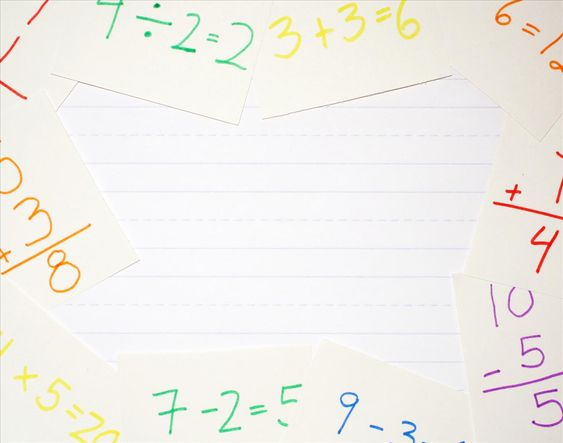 ÷ 2 = 2
3 + 3 = 6
6 =
3
8
+
4
10
- 5
5
+ 5 = 20
7 - 2 = 5
9 - 3